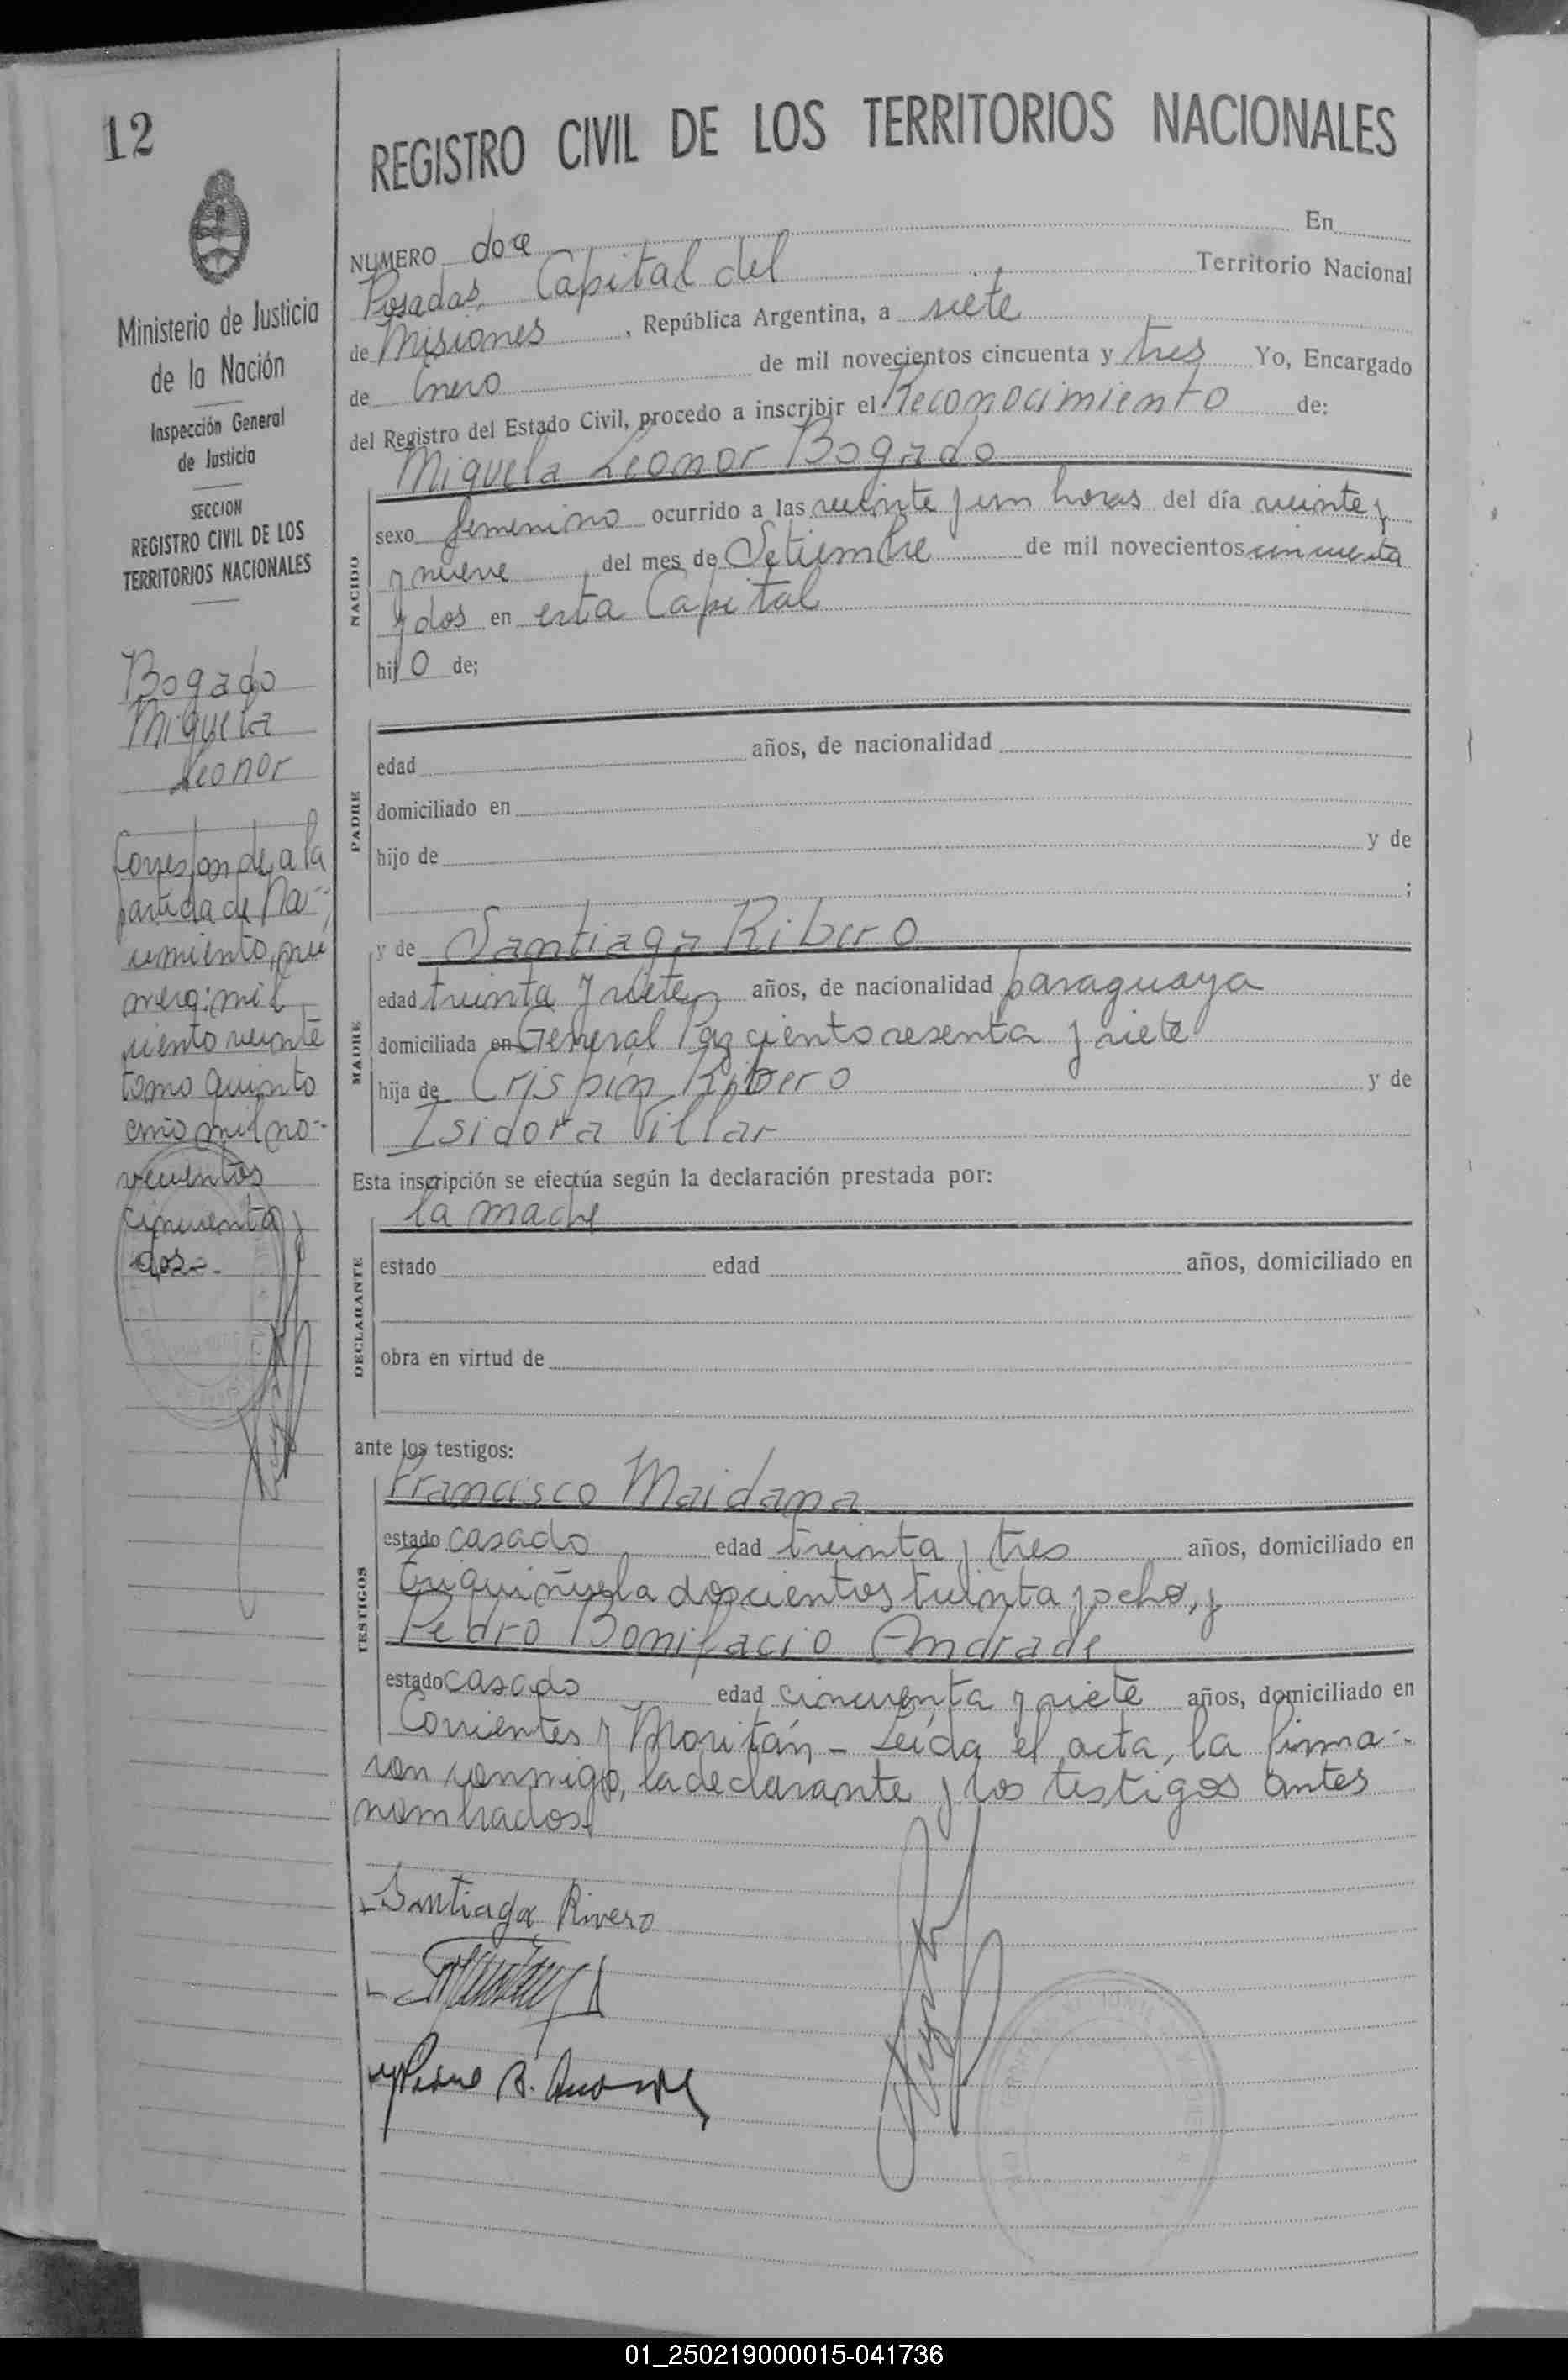 12
REGISTRO CIVIL DE LOS TERRITORIOS NACIONALES
Ministerio de Justicia
de la Nación
Inspección General
de Justicia
SECCION
REGISTRO CIVIL DE LOS
TERRITORIOS NACIONALES
Bogado
Miguela
Leonor
Corresponde a la
partida de Na-
cimiento, nú
mero: mil
ciento veinte
tomo quinto
año mil no-
vecientos
cincuenta y
dos.-
NUMERO doce En
Posadas, Capital del Territorio Nacional
de Misiones, República Argentina, a siete
de Enero de mil novecientos cincuenta y tres Yo, Encargado
del Registro del Estado Civil, procedo a inscribir el Reconocimiento de:
Miguela Leonor Bogado
NACIDO
sexo femenino ocurrido a las veinte y un horas del día veinte y
y nueve del mes de Setiembre de mil novecientos cincuenta
y dos en esta Capital
hijo de;
PADRE
edad años, de nacionalidad
domiciliado en
hijo de y de
;
MADRE
y de Santiaga Ribero
edad treinta y siete años, de nacionalidad paraguaya
domiciliada en General Paz ciento sesenta y siete
hija de Crispín Ribero y de
Isidora Villar
Esta inscripción se efectúa según la declaración prestada por:
la madre
DECLARANTE
estado edad años, domiciliado en
obra en virtud de
ante los testigos:
TESTIGOS
Francisco Maidana
estado casado edad treinta y tres años, domiciliado en
doscientos treinta y ocho, y
Pedro Bonifacio Andrade
estado casado edad cincuenta y siete años, domiciliado en
Corrientes y Moritán - Leída el acta, la firma-
ron conmigo, la declarante y los testigos antes
nombrados.
Santiaga Rivero
Pedro B. Andrade
01_250219000015-041736